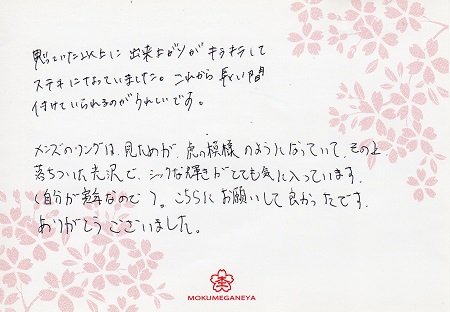 思っていた以上に出来上がりがキラキラして
ステキになっていました。これから長い間
付けていられるのがうれしいです。
メンズのリングは、見ためが、虎の模様のようになっていて、その上
落ちついた光沢で、シックな輝きがとても気に入っています。
(自分が寅年なので)。こちらにお願いして良かったです。
ありがとうございました。
MOKUMEGANEYA